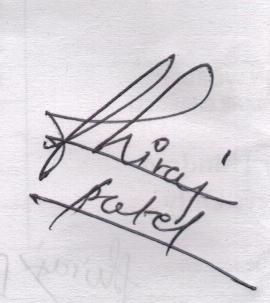 Dhiraj
patel